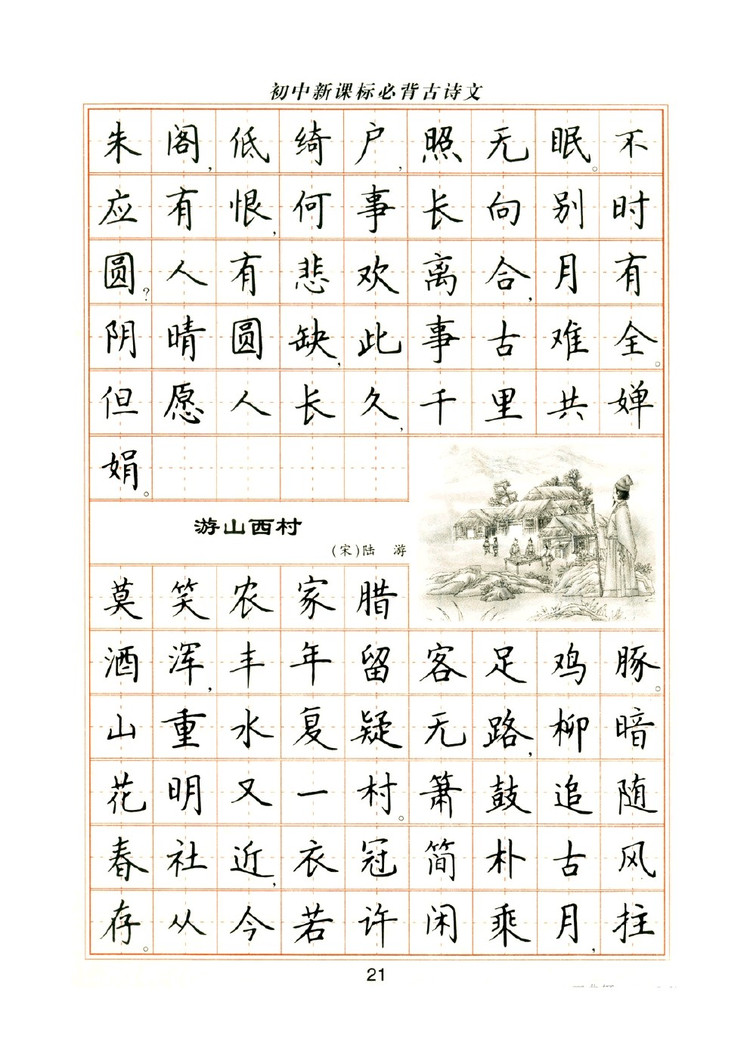 初中新课标必背古诗文
朱阁,低绮户,照无眠。不
应有恨,何事长向别时
圆?人有悲欢离合,月有
阴晴圆缺,此事古难全。
但愿人长久,千里共婵
娟。
游山西村
(宋)陆 游
莫笑农家腊
酒浑,丰年留客足鸡豚。
山重水复疑无路,柳暗
花明又一村。箫鼓追随
春社近,衣冠简朴古风
存。从今若许闲乘月,拄
21